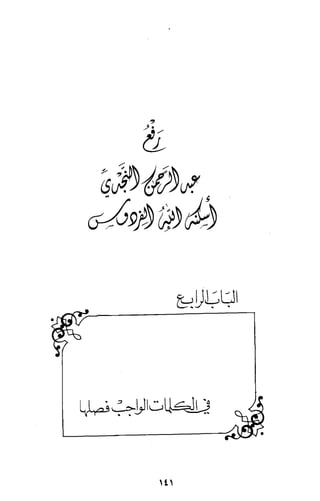 رَفْعُ
عبد الرحمن النجدي
أسكنه الله الفردوس
البَاب الرابع
في الكلمات الواجب فصلها
١٤١